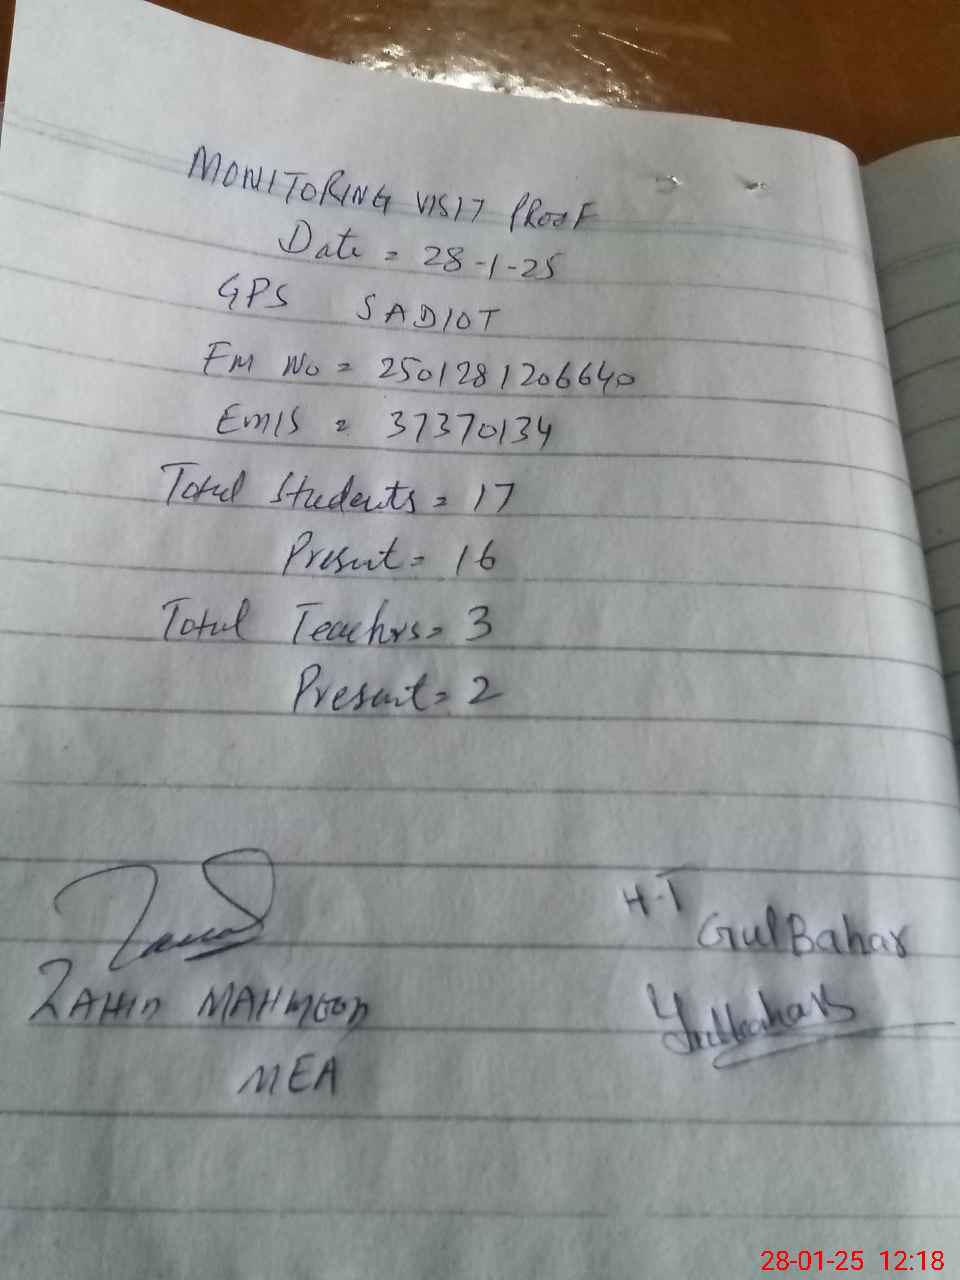 MONITORING VISIT PROOF
Date = 28-1-25
GPS SADIOT
Em No = 2501281206640
EMIS = 37370134
Total Students = 17
Present = 16
Total Teachrs = 3
Present = 2
H-T
GulBahar
ZAHID MAHMOOD
Gulbahar
MEA
28-01-25 12:18